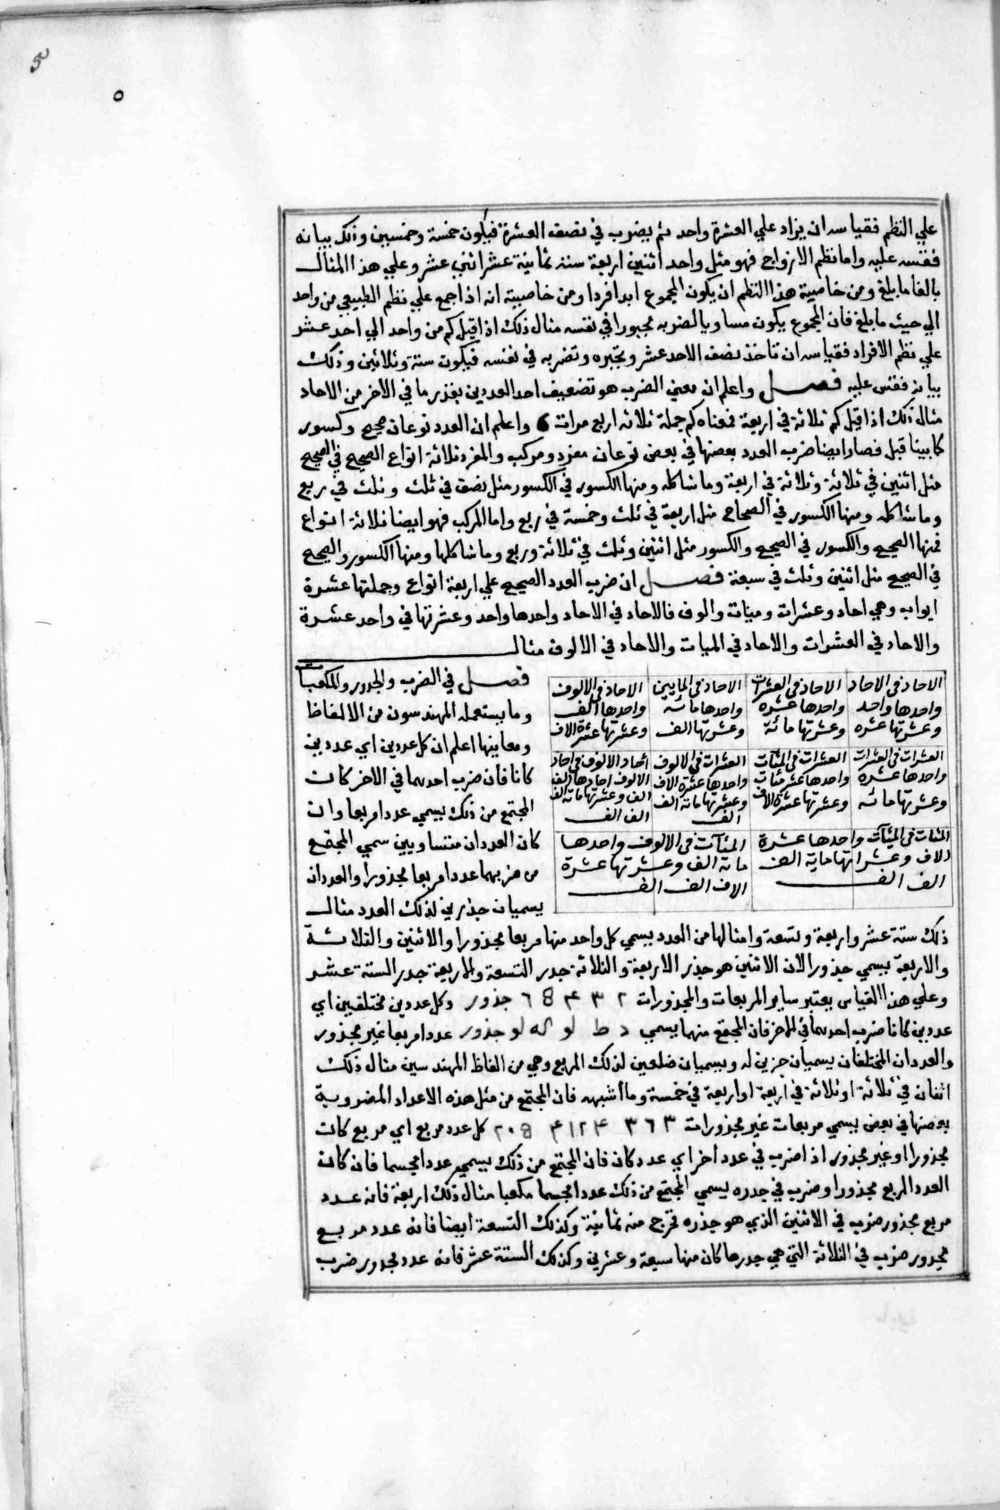 ٥
علي النظم فقياسه ان يزاد علي العشرة واحد ثم يضرب في نصف العشرة فيكون خمسة وخمسين وذلك بيانه
فقسه عليه واما نظم الازواج فهو مثل واحد اثنين اربعة ستة ثمانية عشر اثني عشر وعلي هذا المثال
بالغا ما بلغ ومن خاصية هذا النظم ان يكون المجموع ابدا فردا ومن خاصيته انه اذا جمع علي نظم الطبيعي من واحد
الي حيث ما بلغ فان المجموع يكون مساويا لضربه مجبورا في نفسه مثال ذلك اذا قيل كم من واحد الي احد عشر
علي نظم الافراد فقياسه ان تاخذ نصف الاحد عشر وتجبره وتضربه في نفسه فيكون ستة وثلاثين وذلك
بيانه فقس عليه فصل واعلم ان معني الضرب هو تضعيف احد العددين بقدر ما في الاخر من الاحاد
مثال ذلك اذا قيل كم ثلاثة في اربعة فمعناه كم جملة ثلاثة اربع مرات واعلم ان العدد نوعان صحيح وكسور
كما بينا قبل فصار ايضا ضرب العدد بعضها في بعض نوعان مفرد ومركب والمفرد ثلاثة انواع الصحيح في الصحيح
مثل اثنين في ثلاثة وثلاثة في اربعة وما شاكله ومنها الكسور في الكسور مثل نصف في ثلث وثلث في ربع
وما شاكله ومنها الكسور في الصحاح مثل اربعة في ثلث وخمسة في ربع واما المركب فهو ايضا ثلاثة انواع
فمنها الصحيح والكسور في الصحيح والكسور مثل اثنين وثلث في ثلاثة وربع وما شاكلها ومنها الكسور والصحيح
في الصحيح مثل اثنين وثلث في سبعة فصل ان ضرب العدد الصحيح علي اربعة انواع وجملتها عشرة
ابواب وهي احاد وعشرات وميات والوف فالاحاد في الاحاد واحدها واحد وعشرتها في واحد عشرة
والاحاد في العشرات والاحاد في الميات والاحاد في الالوف مثال
الاحاد في الاحاد الاحاد في العشرات الاحاد في المايين الاحاد في الالوف
واحدها واحد واحدها عشرة واحدها مائة واحدها الف
وعشرتها عشرة وعشرتها مائة وعشرتها الف وعشرتها عشرة الاف
العشرات في العشرات العشرات في المئات العشرات في الالوف احاد الالوف في احاد
واحدها عشرة واحدها عشر مئات واحدها عشرة الاف الالوف احادها الف
وعشرتها مائه وعشرتها عشرة الاف وعشرتها مائة الف الف وعشرتها مائة الف
الف الف الف
المئات في المئات واحدها عشرة المئات في الالوف واحدها
الاف وعشراتها ماية الف مائة الف وعشرتها عشرة
الف الف الاف الف الف
فصل في الضرب والجذور والمكعبات
وما يستعمله المهندسون من الالفاظ
ومعانيها اعلم ان كل عددين اي عددين
كانا فان ضرب احدهما في الاخر كانت
المجتمع من ذلك يسمي عددا مربعا وان
كان العددان متساويين سمي المجتمع
من ضربهما عددا مربعا مجذورا والعددان
يسميان جذرين لذلك العدد مثال
ذلك ستة عشر واربعة وتسعة وامثالها من العدد يسمي كل واحد منها مربعا مجذورا والاثنين والثلاثة
والاربعة يسمي جذورا لان الاثنين هو جذر الاربعة والثلاثة جذر التسعة والاربعة جذر الستة عشر
وعلي هذا القياس يعتبر ساير المربعات والمجذورات ٢ ٣ ۴ 8 ٦ جذور وكل عددين مختلفين اي
عددين كانا ضرب احدهما في الاخر فان المجتمع منهما يسمي د ط لو كه لو جذور عددا مربعا غير مجذور
والعددان المختلفان يسميان جزين له ويسميان ضلعين لذلك المربع وهي من الفاظ المهندسين مثال ذلك
اثنان في ثلاثة او ثلاثة في اربعة او اربعة في خمسة وما اشبهه فان المجتمع من مثل هذه الاعداد المضروبة
بعضها في بعض يسمي مربعات غير مجذورات ٣ ٦ ٣ ۴ ١٢ ۴ 8 ٢٠ كل عدد مربع اي مربع كانت
مجذورا او غير مجذور اذا ضرب في عدد اخر اي عدد كان فان المجتمع من ذلك يسمي عددا مجسما فان كان
العدد المربع مجذورا وضرب في جذره يسمي المجتمع من ذلك عددا مجسما مكعبا مثال ذلك اربعة فانه عدد
مربع مجذور ضرب في الاثنين الذي هو جذره فخرج منه ثمانية وكذلك التسعة ايضا فانه عدد مربع
مجذور ضرب في الثلاثة التي هي جذرها كان منها سبعة وعشرين وكذلك الستة عشر فانه عدد مجذور ضرب